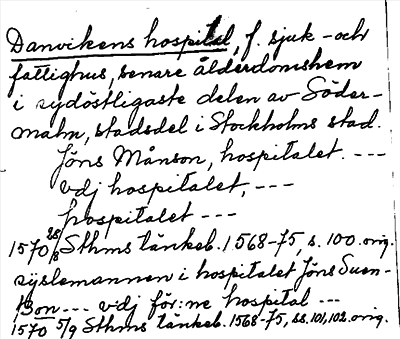 Danvikens hospital, f. sjuk- och
fattighus, senare ålderdomshem
i sydöstligaste delen av Söder-
malm, stadsdel i Stockholms stad.
Jöns Månson, hospitalet. ---
vdj hospitalet, ---
hospitalet ---
1570 28/8 Sthms tänkeb. 1568-75, s. 100. orig.
syslemannen i hospitalet Jöns Suen-
son --- vdj för:ne hospital ---
1570 5/9 Sthms tänkeb. 1568-75, ss. 101, 102. orig.